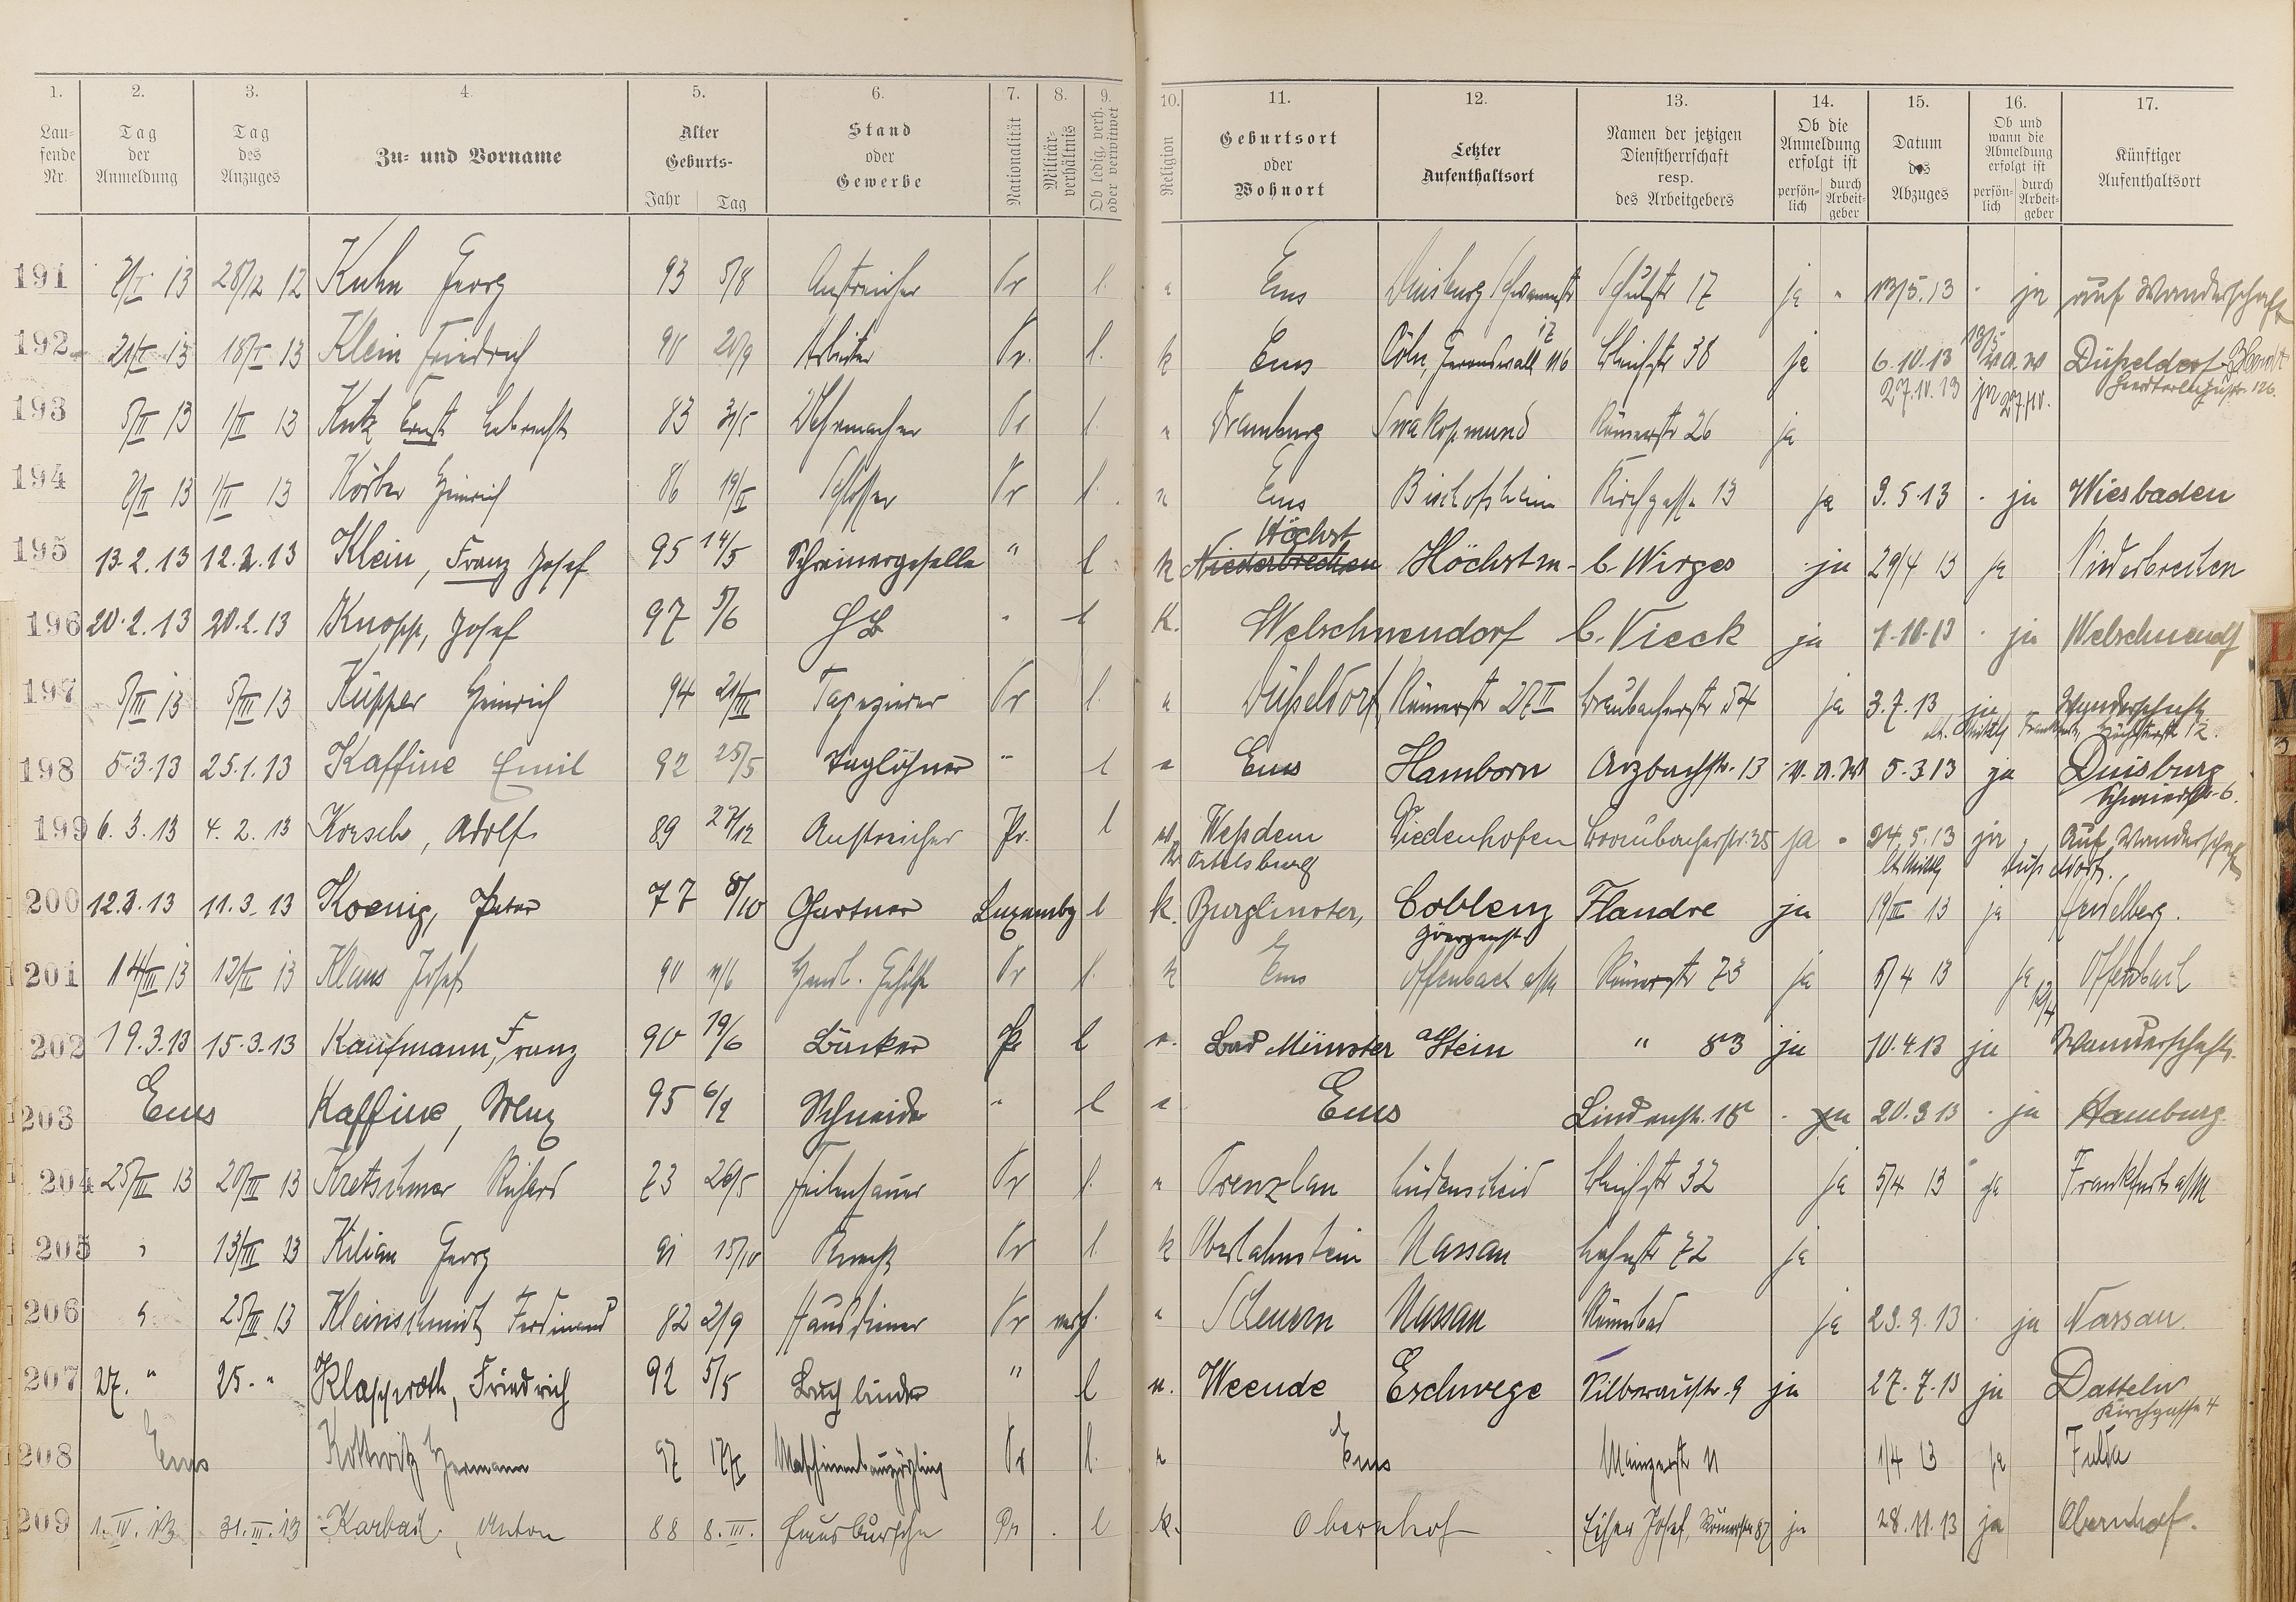 1. Laufende Nr. 2. Tag der Anmeldung 3. Tag des Anzuges 4. Zu- und Vorname 5. Alter Geburts- Jahr Tag 6. Stand oder Gewerbe 7. Nationalität 8. Militärverhältnis 9. Ob ledig, verh. oder verwitwet 10. Religion 11. Geburtsort oder Wohnort 12. Letzter Aufenthaltsort 13. Namen der jetzigen Dienstherrschaft resp. des Arbeitgebers 14. Ob die Anmeldung erfolgt ist persönlich durch Arbeitgeber 15. Datum des Abzuges 16. Ob und wann die Abmeldung erfolgt ist persönlich durch Arbeitgeber 17. Künftiger Aufenthaltsort
191 13 28/12 12 Kuhn Georg 93 5/8 Anstreicher Pr l. Ems Duisburg Schulstr 17 ja " 13/5.13 · ja auf Wanderschaft
192 21/I 13 18/I 13 Klein Friedrich 90 20/9 Arbeiter Pr. l. k Ems Cöln, Bleichstr 38 ja 6.10.13 Düsseldorf
27.10.13 ja
193 5/II 13 1/II 13 Kutz Ernst Lebrecht 83 31/5 Uhrmacher Pr l. Dramburg Swakopmund Römerstr 26 ja
194 13 1/II 13 Körber Heinrich 86 19/II Schlosser Pr l. Ems Bischofsheim Kirchgasse 13 ja 3.5.13 · ja Wiesbaden
Höchst
195 13.2.13 12.2.13 Klein, Franz Josef 95 14/5 Schreinergeselle " l k Niederbrechen Höchst m- b. Wirges ja 29/4 13 ja Niederbrechen
196 20.2.13 20.2.13 Knopp, Josef 97 5/6 " l K. Welschneudorf b. Vieck ja 1.10.13 · ja Welschneudf
197 5/III 13 5/III 13 Küpper Heinrich 94 21/III Tapezierer Pr l. Düsseldorf Römerstr 27 II Braubacherstr 54 ja 3.7.13 ja Wanderschaft
198 5.3.13 25.1.13 Kaffine Emil 92 25/5 Taglöhner " l Ems Hamborn Arzbachstr. 13 v. A. W 5.3.13 ja Duisburg
199 6.3.13 4.2.13 Korsch, Adolf 89 27/12 Anstreicher Pr. l Diedenhofen Braubacherstr. 25 ja " 24.5.13 ja Auf Wanderschaft
Ortelsburg Düsseldorf.
200 12.3.13 11.3.13 Koenig, Peter 77 8/10 Gärtner Luxembg l k. Burglinster, Coblenz Flandre ja 19/III 13 ja Heidelberg.
201 14/III 13 12/III 13 Klaus Josef 90 11/6 Handl. Gehilfe Pr l. k Ems Offenbach a/M Römerstr 73 ja 5/4 13 ja 12/4 Offenbach
202 19.3.13 15.3.13 Kaufmann, Franz 90 19/6 Bäcker Pr l Bad Münster a/Stein " 83 ja 10.4.13 ja Wanderschaft.
203 Ems Kaffine, 95 6/2 Schneider " l Ems Lindenstr. 18 · ja 20.3.13 · ja Hamburg
204 25/III 13 20/III 13 Kretschmer Richard 73 26/5 Feilenhauer Pr l. Prenzlau Lüdenscheid Bleichstr 32 ja 5/4 13 ja Frankfurt a/M
205 " 13/III 13 Kilian Georg 91 15/10 Knecht Pr l k Oberlahnstein Nassau Lahnstr 72 ja
206 " 25/III 13 Kleinschmidt Ferdinand 82 2/9 Hausdiener Pr verh. Scheuern Nassau Römerbad ja 23.9.13 · ja Nassau.
207 27. " 25. " Klapproth, Friedrich 92 5/5 Buchbinder " l Weende Eschwege Silberaustr. 9 ja 27.7.13 ja Datteln
Kirchgasse 4
208 Ems Kottwitz Hermann 97 Pr l. Ems Mainzerstr 11 1/4 13 ja Fulda
209 1.IV.13 31.III.13 Karbach, Anton 88 8.III. Hausbursche Pr . l k. Obernhof Josef, Römerstr 87 ja 28.11.13 ja Obernhof.